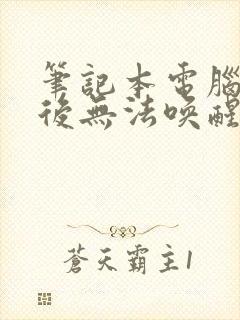 筆記本電腦
後無法喚醒
蒼天霸主1